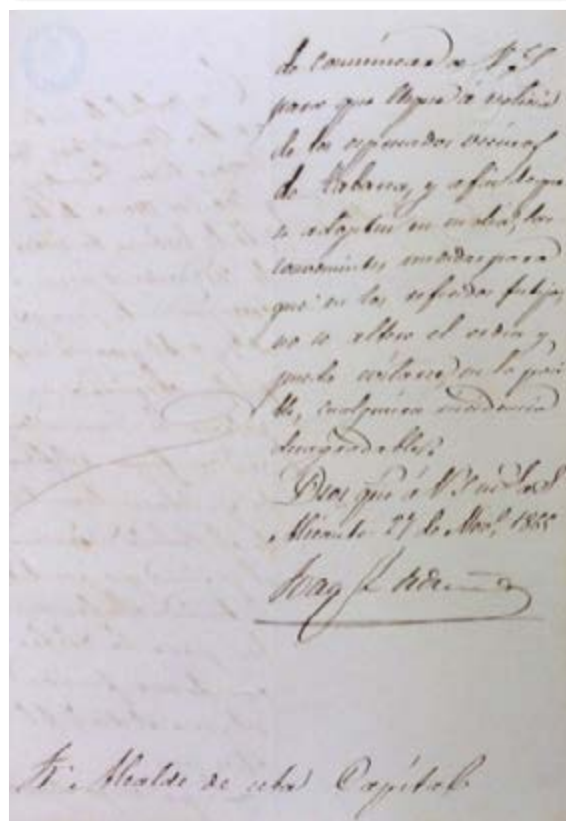 de comunicar a V. S.
para que llegue á noticia
de los espresados vecinos
de Tabarca, y a fin de que
se adopten en
convenientes medidas para
que en los referidos festejos
no se altere el orden y
pueda evitarse, en lo posi
ble, cualquiera incidencia
desagradable.
Dios gue á V. S. m. a.s
Alicante 27 de Nov. 1855
Sr. Alcalde de esta Capital.